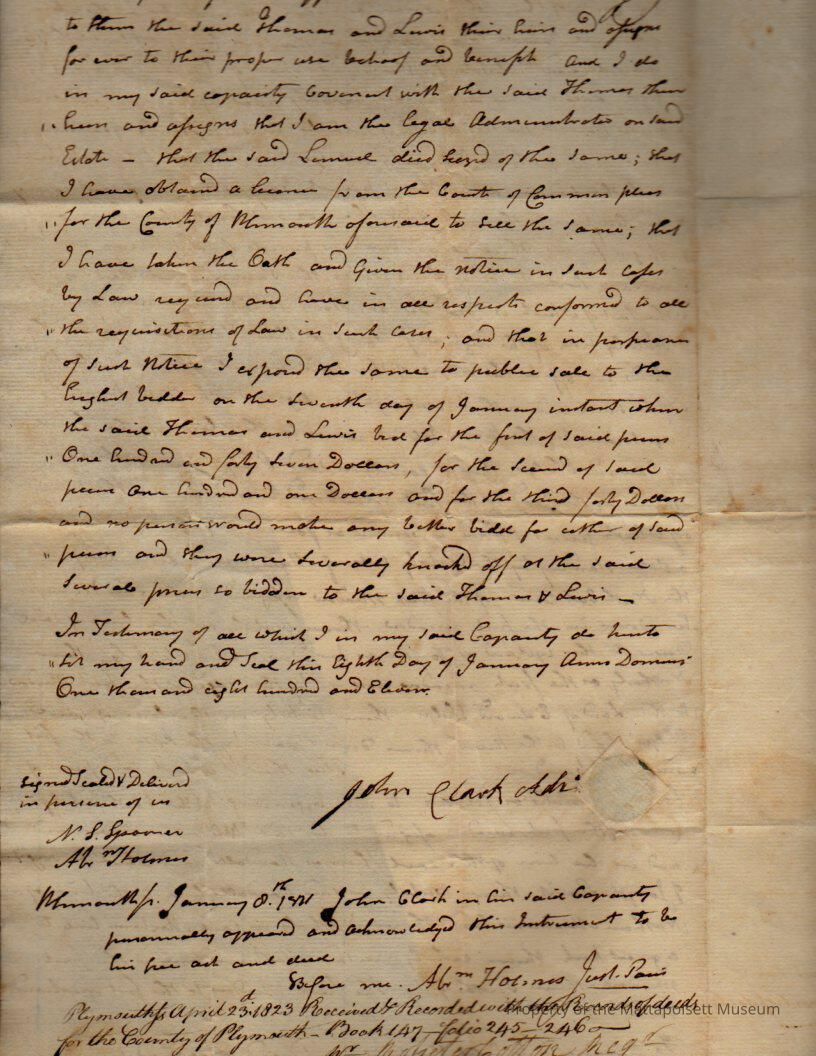 to them the said Thomas and Lewis their heirs and assigns
for ever to their proper use behoof and benefit And I do
in my said capacity Covenant with the said Thomas their
heirs and assigns that I am the legal Administrator on said
Estate – that the said Lemuel died seizd of the same; that
I have obtaind a license from the Court of Common pleas
for the County of Plymouth aforesaid to sell the same; that
I have taken the Oath and Given the notice in such cases
by Law requird and have in all respects conformed to all
the requisitions of Law in such cases; and that in pursuance
of such Notice I expozd the same to public sale to the
highest bidder on the seventh day of January instant when
the said Thomas and Lewis bid for the first of said pieces
One hundred and forty seven Dollars, for the second of said
pieces One hundred and one Dollars and for the third forty Dollars
and no person would make any better bidd for either of said
pieces and they were severally knockd off at the said
several prices so bidden to the said Thomas & Lewis –
In Testimony of all which I in my said Capacity do hereto
set my hand and Seal this Eighth Day of January Anno Domini
One thousand eight hundred and Eleven.
Signed Seald & Deliverd
in presence of us
N. S. Spooner
Abrm Holmes
John Clark Adr
Plymouth ss. January 8.th 1811 John Clark in his said Capacity
personally appeared and acknowledged this Instrument to be
his free act and deed
Before me. Abrm Holmes Just. Pacis
Plymouth ss April 23d 1823 Received & Recorded with the Records of deeds
for the County of Plymouth – Book 147 – folio 245 – 246
Property of the Mattapoisett Museum